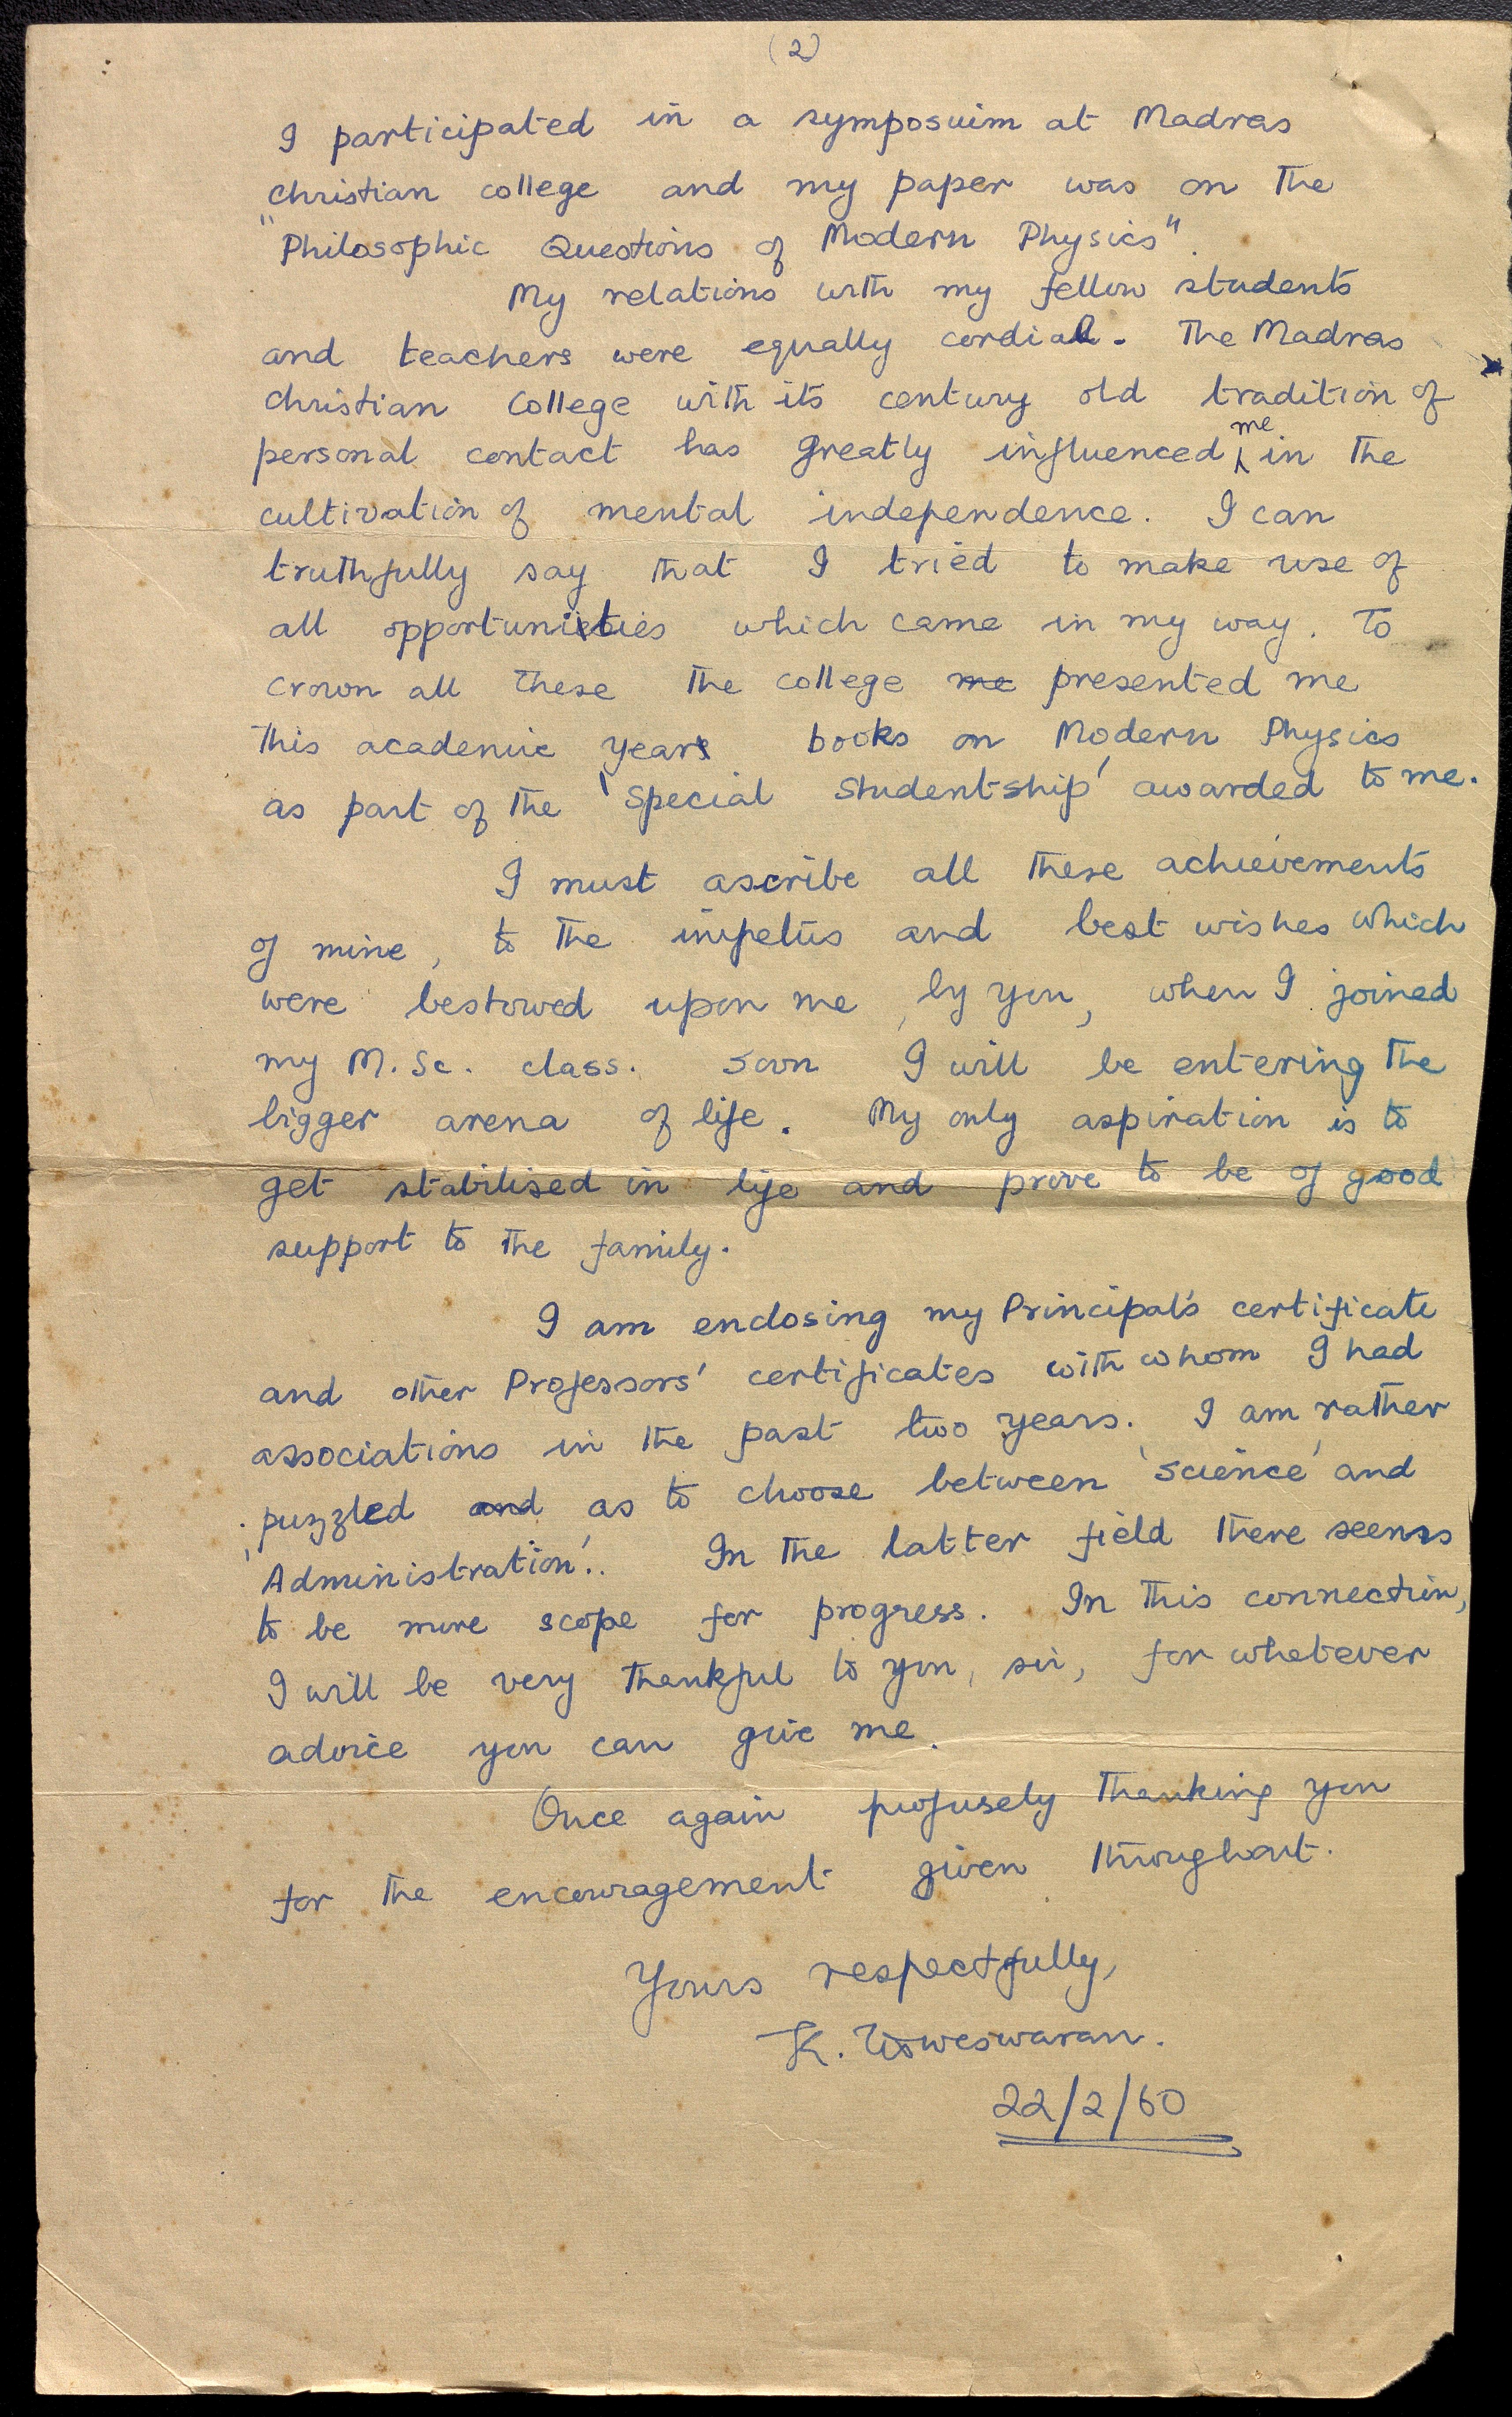 (2)
I participated in a symposuim at Madras
christian college and my paper was on the
"Philosophic Questions of Modern Physics".
My relations with my fellow students
and teachers were equally cordial. The Madras
christian College with its century old tradition of
personal contact has greatly influenced me in the
cultivation of mental independence. I can
truthfully say that I tried to make use of
all opportunities which came in my way. To
crown all these the college me presented me
this academic year books on Modern Physics
as part of the 'Special Studentship' awarded to me.
I must ascribe all these achievements
of mine, to the impetus and best wishes which
were bestowed upon me, by you, when I joined
my M.Sc. class. Soon I will be entering the
bigger arena of life. My only aspiration is to
get stabilised in life and prove to be of good
support to the family.
I am enclosing my Principal's certificate
and other Professors' certificates with whom I had
associations in the past two years. I am rather
puzzled and as to choose between 'Science' and
'Administration'. In the latter field there seems
to be more scope for progress. In this connection,
I will be very thankful to you, sir, for whatever
advice you can give me.
Once again profusely thanking you
for the encouragement given throughout.
Yours respectfully,
K. Visweswaran.
22/2/60